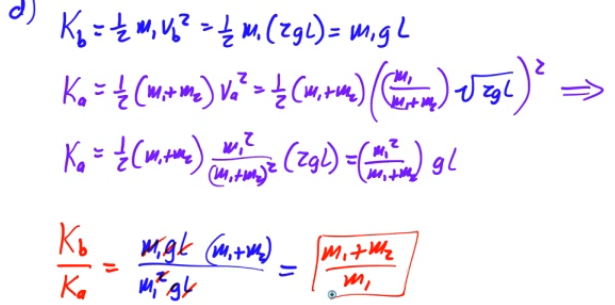 d) K_b = ½ m₁ v_b² = ½ m₁ (2gL) = m₁gL
K_a = ½ (m₁+m₂) v_a² = ½ (m₁+m₂) ((m₁/(m₁+m₂)) √2gL)² ⟹
K_a = ½ (m₁+m₂) m₁²/(m₁+m₂)² (2gL) = (m₁²/(m₁+m₂)) gL
K_b/K_a = m₁gL (m₁+m₂)/m₁²gL = (m₁+m₂)/m₁